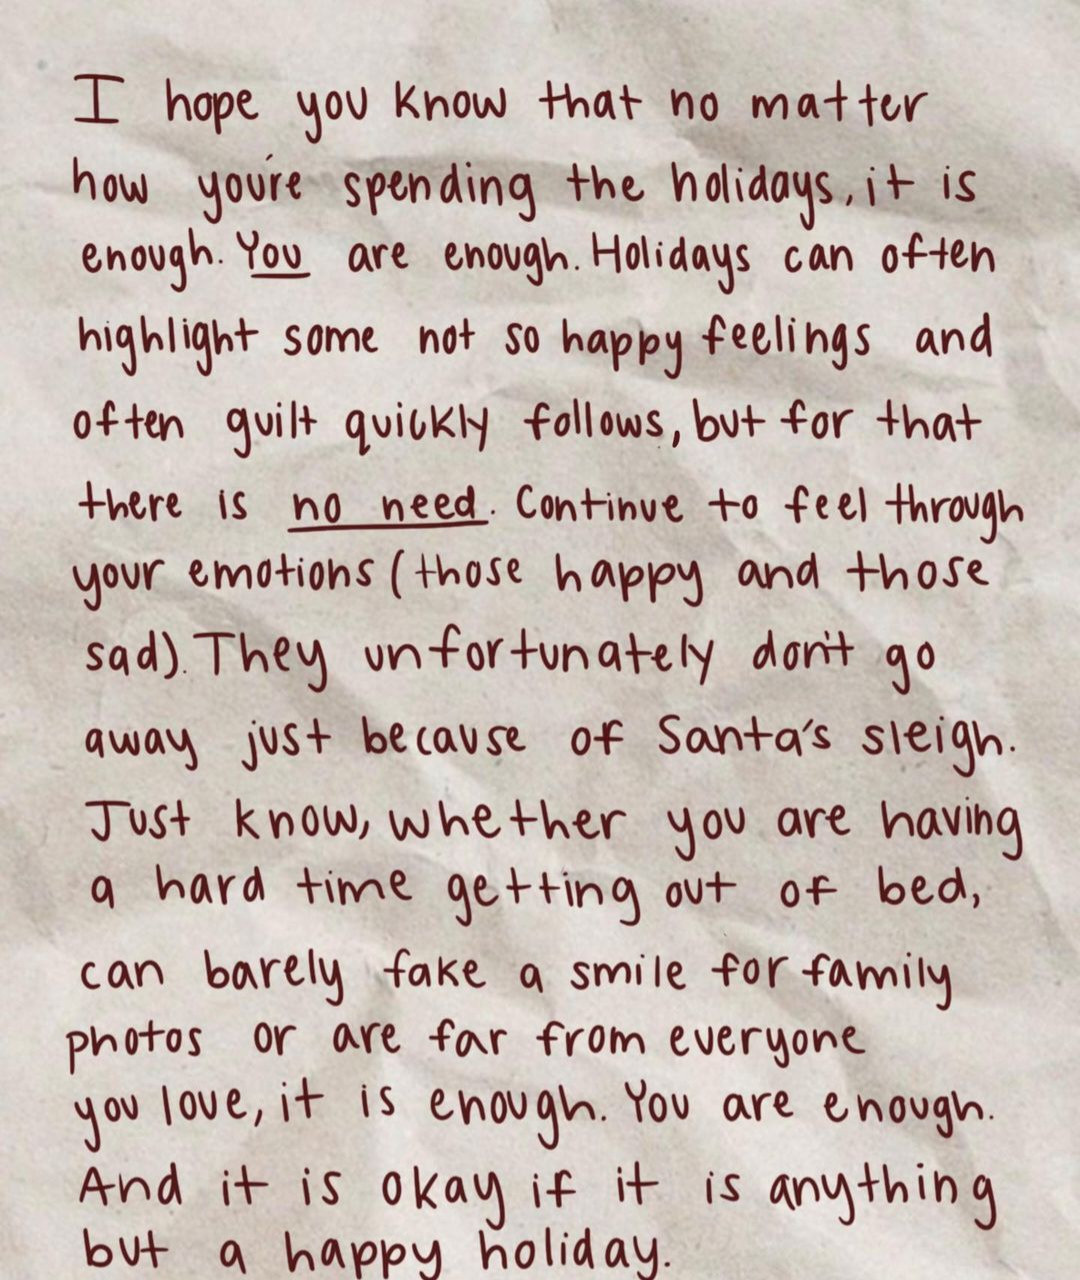 I hope you know that no matter
how you're spending the holidays, it is
enough. You are enough. Holidays can often
highlight some not so happy feelings and
often guilt quickly follows, but for that
there is no need. Continue to feel through
your emotions (those happy and those
sad). They unfortunately don't go
away just because of Santa's sleigh.
Just know, whether you are having
a hard time getting out of bed,
can barely fake a smile for family
photos or are far from everyone
you love, it is enough. You are enough.
And it is okay if it is anything
but a happy holiday.